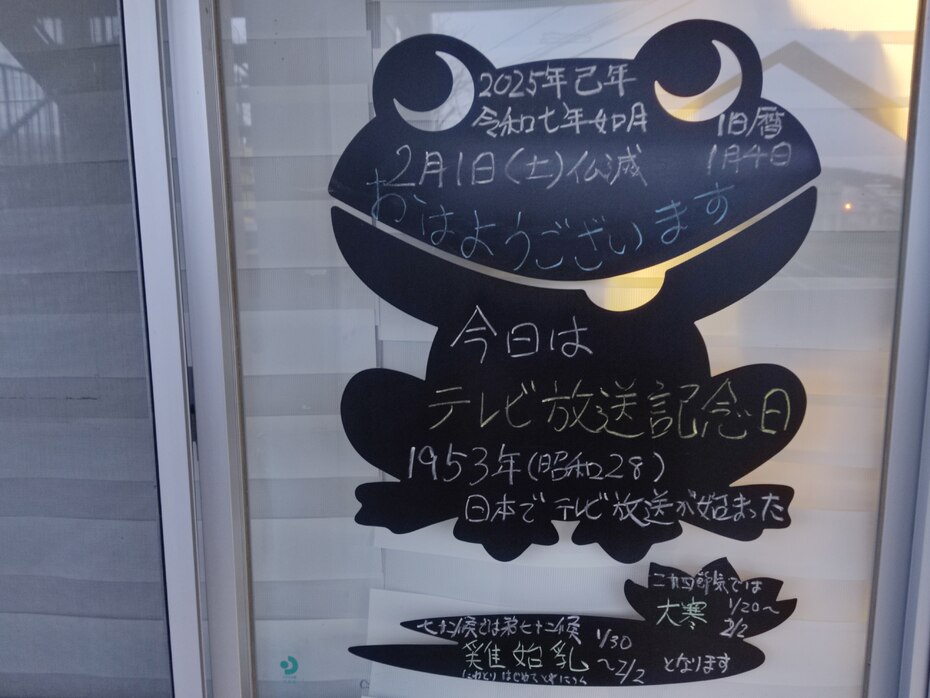 2025年己年
令和七年如月
旧暦
1月4日
2月1日(土)仏滅
おはようございます
今日は
テレビ放送記念日
1953年(昭和28)
日本でテレビ放送が始まった
二十四節気では
大寒 1/20~
2/2
七十二候では第七十二候
雞始乳 1/30
~2/2
にわとりはじめてとやにつく
となります